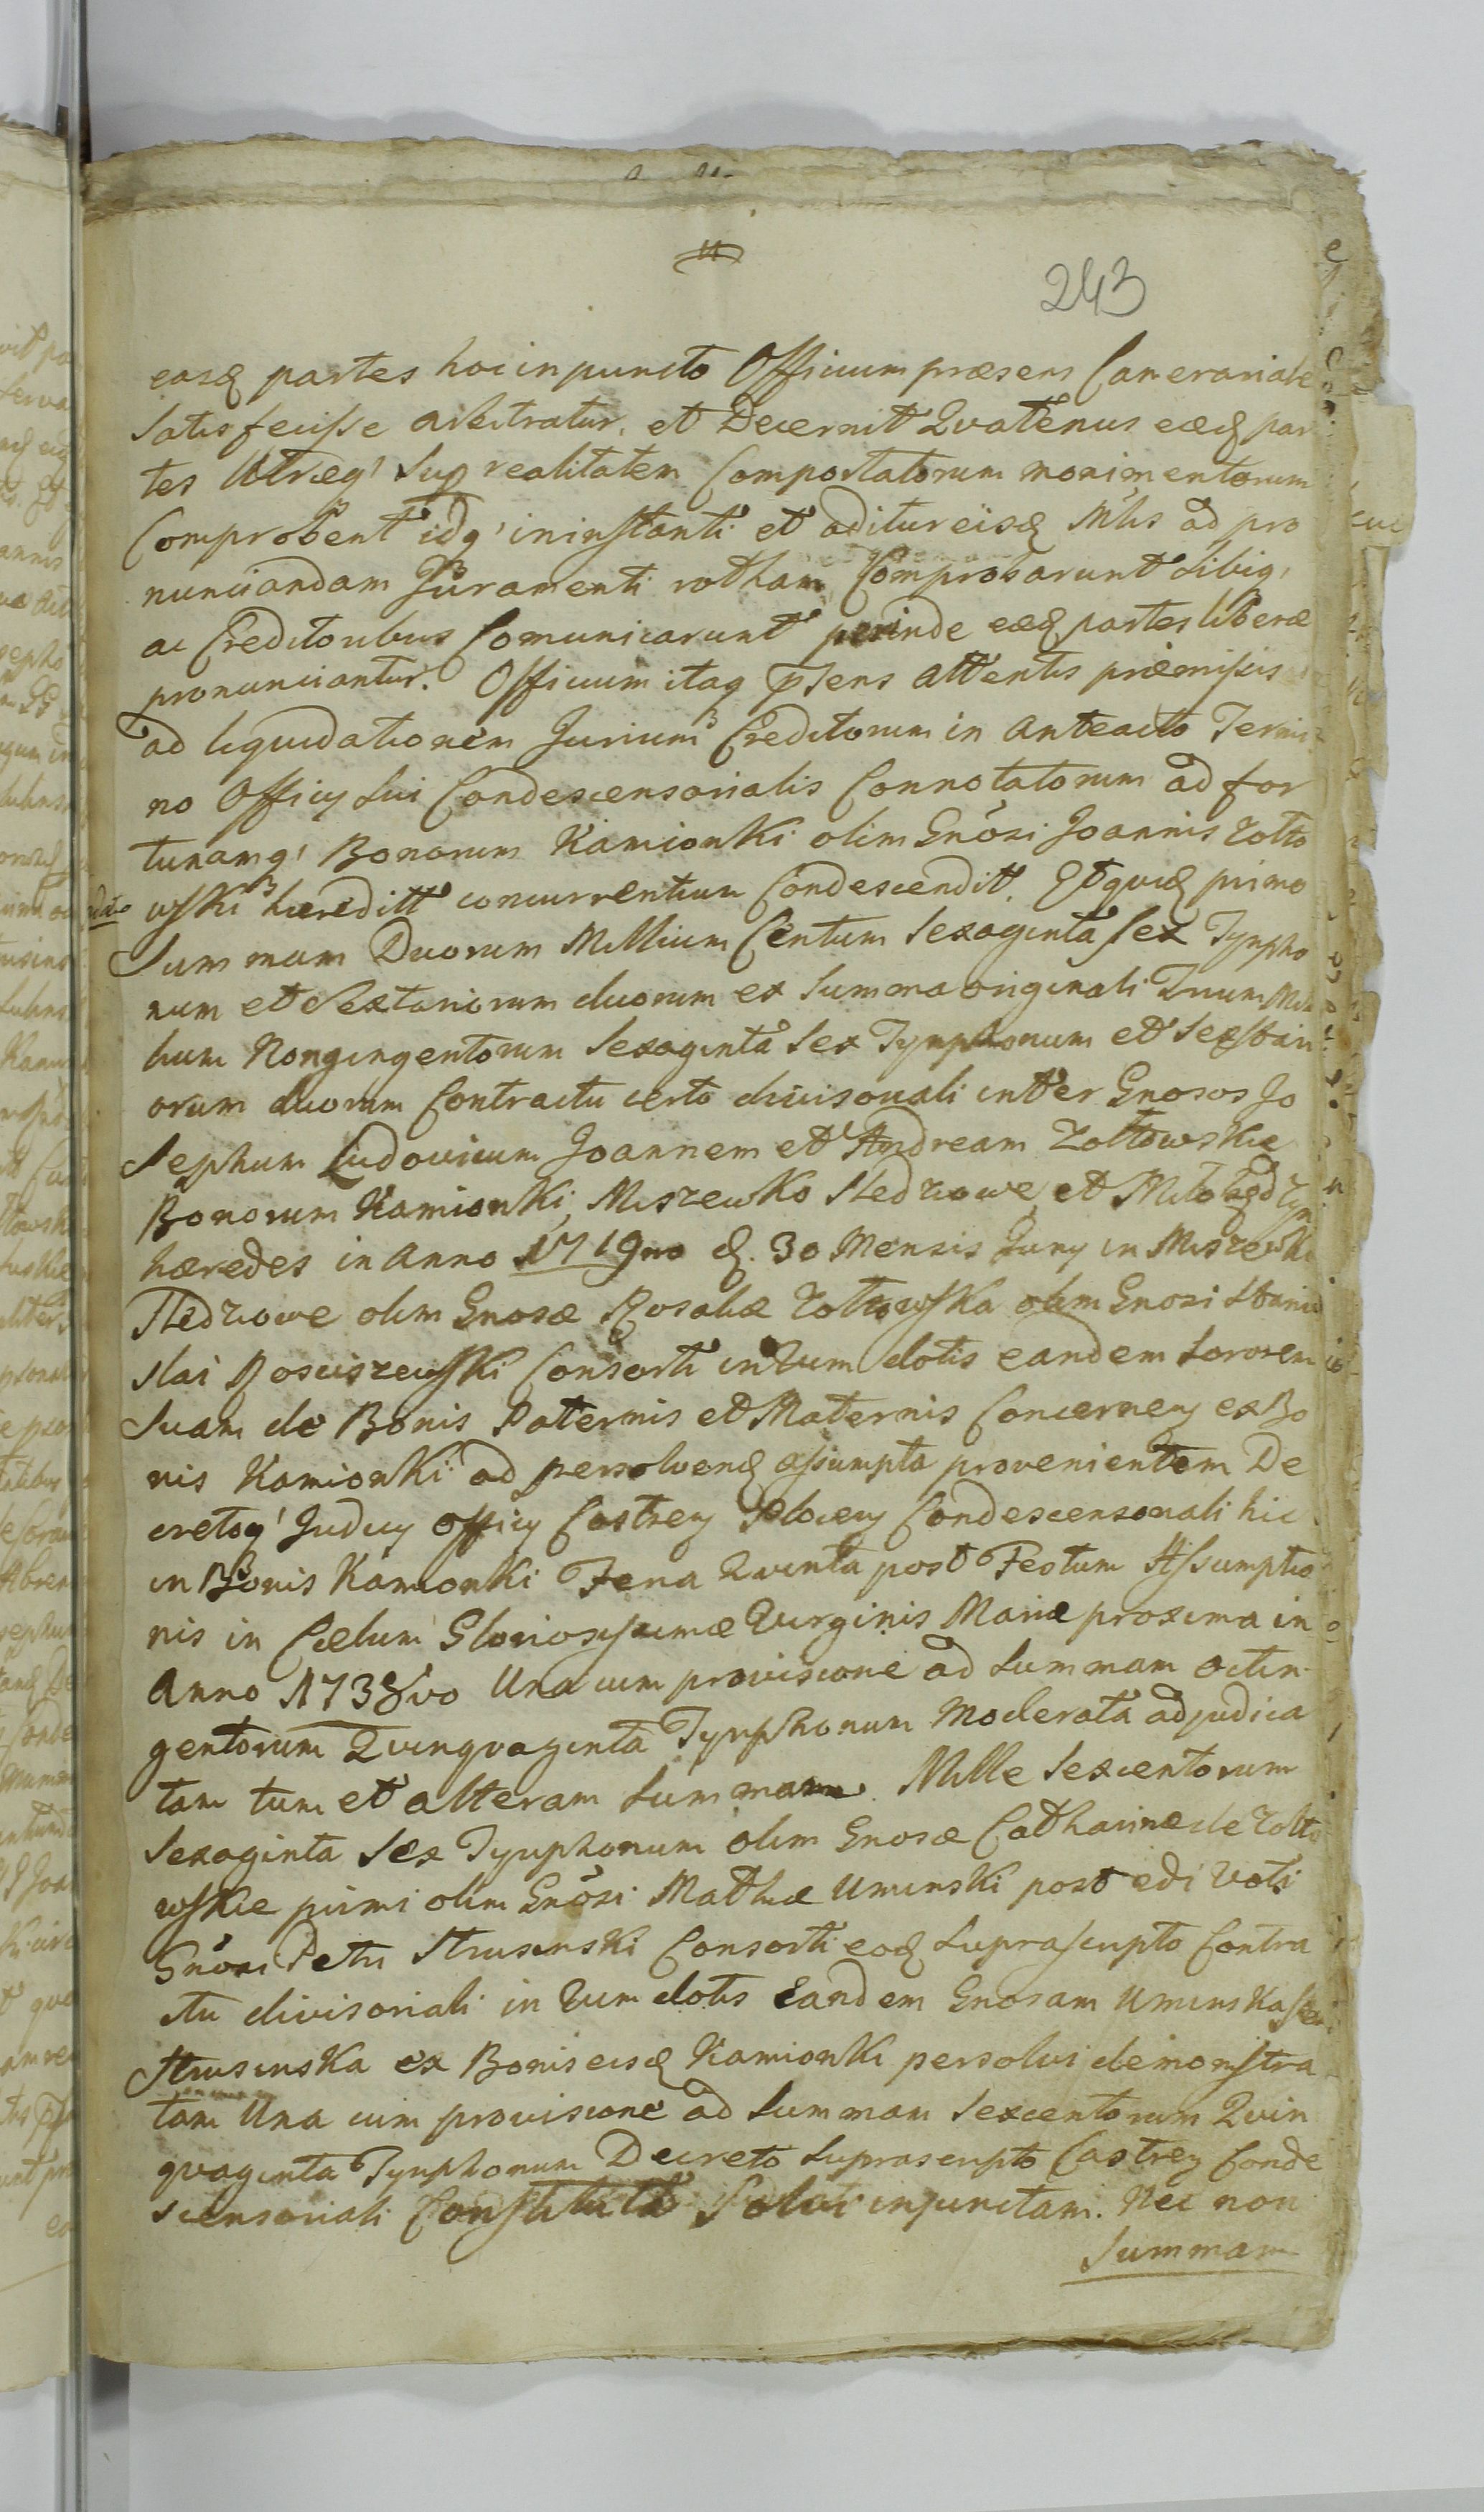 243
easq partes hoc in puncto Officium præsens Camerariale
Satisfecisse arbitratur, et Decernit Qvatenus eæq par
tes Utræq' Sup realitatem Comportatorum monimentorum
Comprobent idq' in instanti et aditur eisq Mtis ad pro
nunciandam Juramenti rotham Comprobarunt Sibiq'
ac Creditoribus Comunicarunt perinde eæq partes liberæ
pronunciantur. Officium itaq pſens attentis præmissis
ad liquidationem Jurium Creditorum in anteacto Termi
no Officy Sui Condescensorialis Connotatorum ad for
tunamq' Bonorum Kamionki olim Gnosi Joannis Zolto
wſki hæreditt concurrentium Condescendit. Et qvidq primo
Summam Duorum Millium Centum Sexaginta Sex Tympho
num et Sextariorum duorum ex Summa originali Trium Mil
lium Nongingentorum Sexaginta Sex Tymphonum et Sextari
orum duorum Contractu certo divisionali inter Gnosos Jo
Sephum Ludovicum Joannem et Andream Zołtowskie
Bonorum Kamionki, Miszewko Stedzowe et
hæredes in Anno 1719no d. 30 Mensis Juny in Miszewko
Stedzowe olim Gnosæ Rosaliæ Zoltowſka olim Gnosi Stanis
slai Rosciszewſki Consorti in Vim dotis eandem Sororem
Suam de Bonis Paternis et Maternis Concerneñ ex Bo
nis Kamionki ad persolvenq aſsumpta provenientem De
cretoq' Judicy Officy Castreñ Ploceñ Condescensoriali hic
in Bonis Kamionki Feria Qvinta post Festum Aſsumptio
nis in Cælum Gloriosiſsimæ Virginis Mariæ proxima in
Anno 1738vo Una cum provisione ad Summam octin
gentorum Qvinqvaginta Tymphonum Moderata adjudica
tam tum et alteram Summam Mille Sexcentorum
Sexaginta Sex Tymphonum olim Gnosæ Catharinæ de Zolto
wſkie primi olim Gnosi Mathiæ Uminski post edi Voti
Gnosi Petri Strusinski Consorti eoq Supraſcripto Contra
ctu divisoriali in Vim dotis Eandem Gnosam Uminska
Strusinska ex Bonis eisq Kamionki persolvi demonſtra
tam Una cum provisione ad Summam Sexcentorum Qvin
qvaginta Tymphonum Decreto Suprascripto Castreñ Conde
scensoriali Conſtituta Solvi injunctam. Nec non
Summam